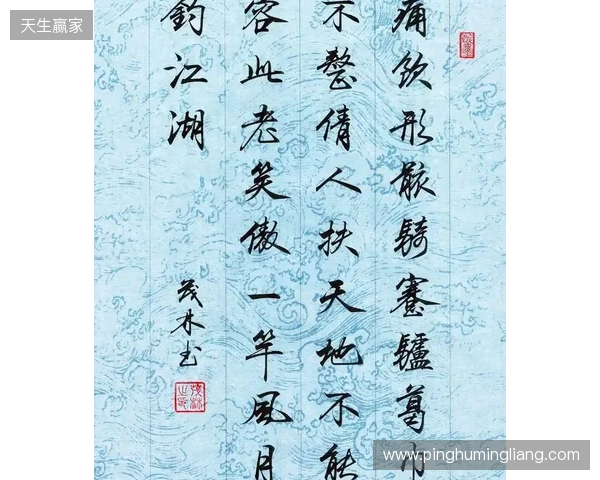 天生赢家
痛飲形骸騎蹇驢葛巾
不整倩人扶天地不能
容此老笑傲一竿風月
釣江湖
茂林书
www.pinghumingliang.com